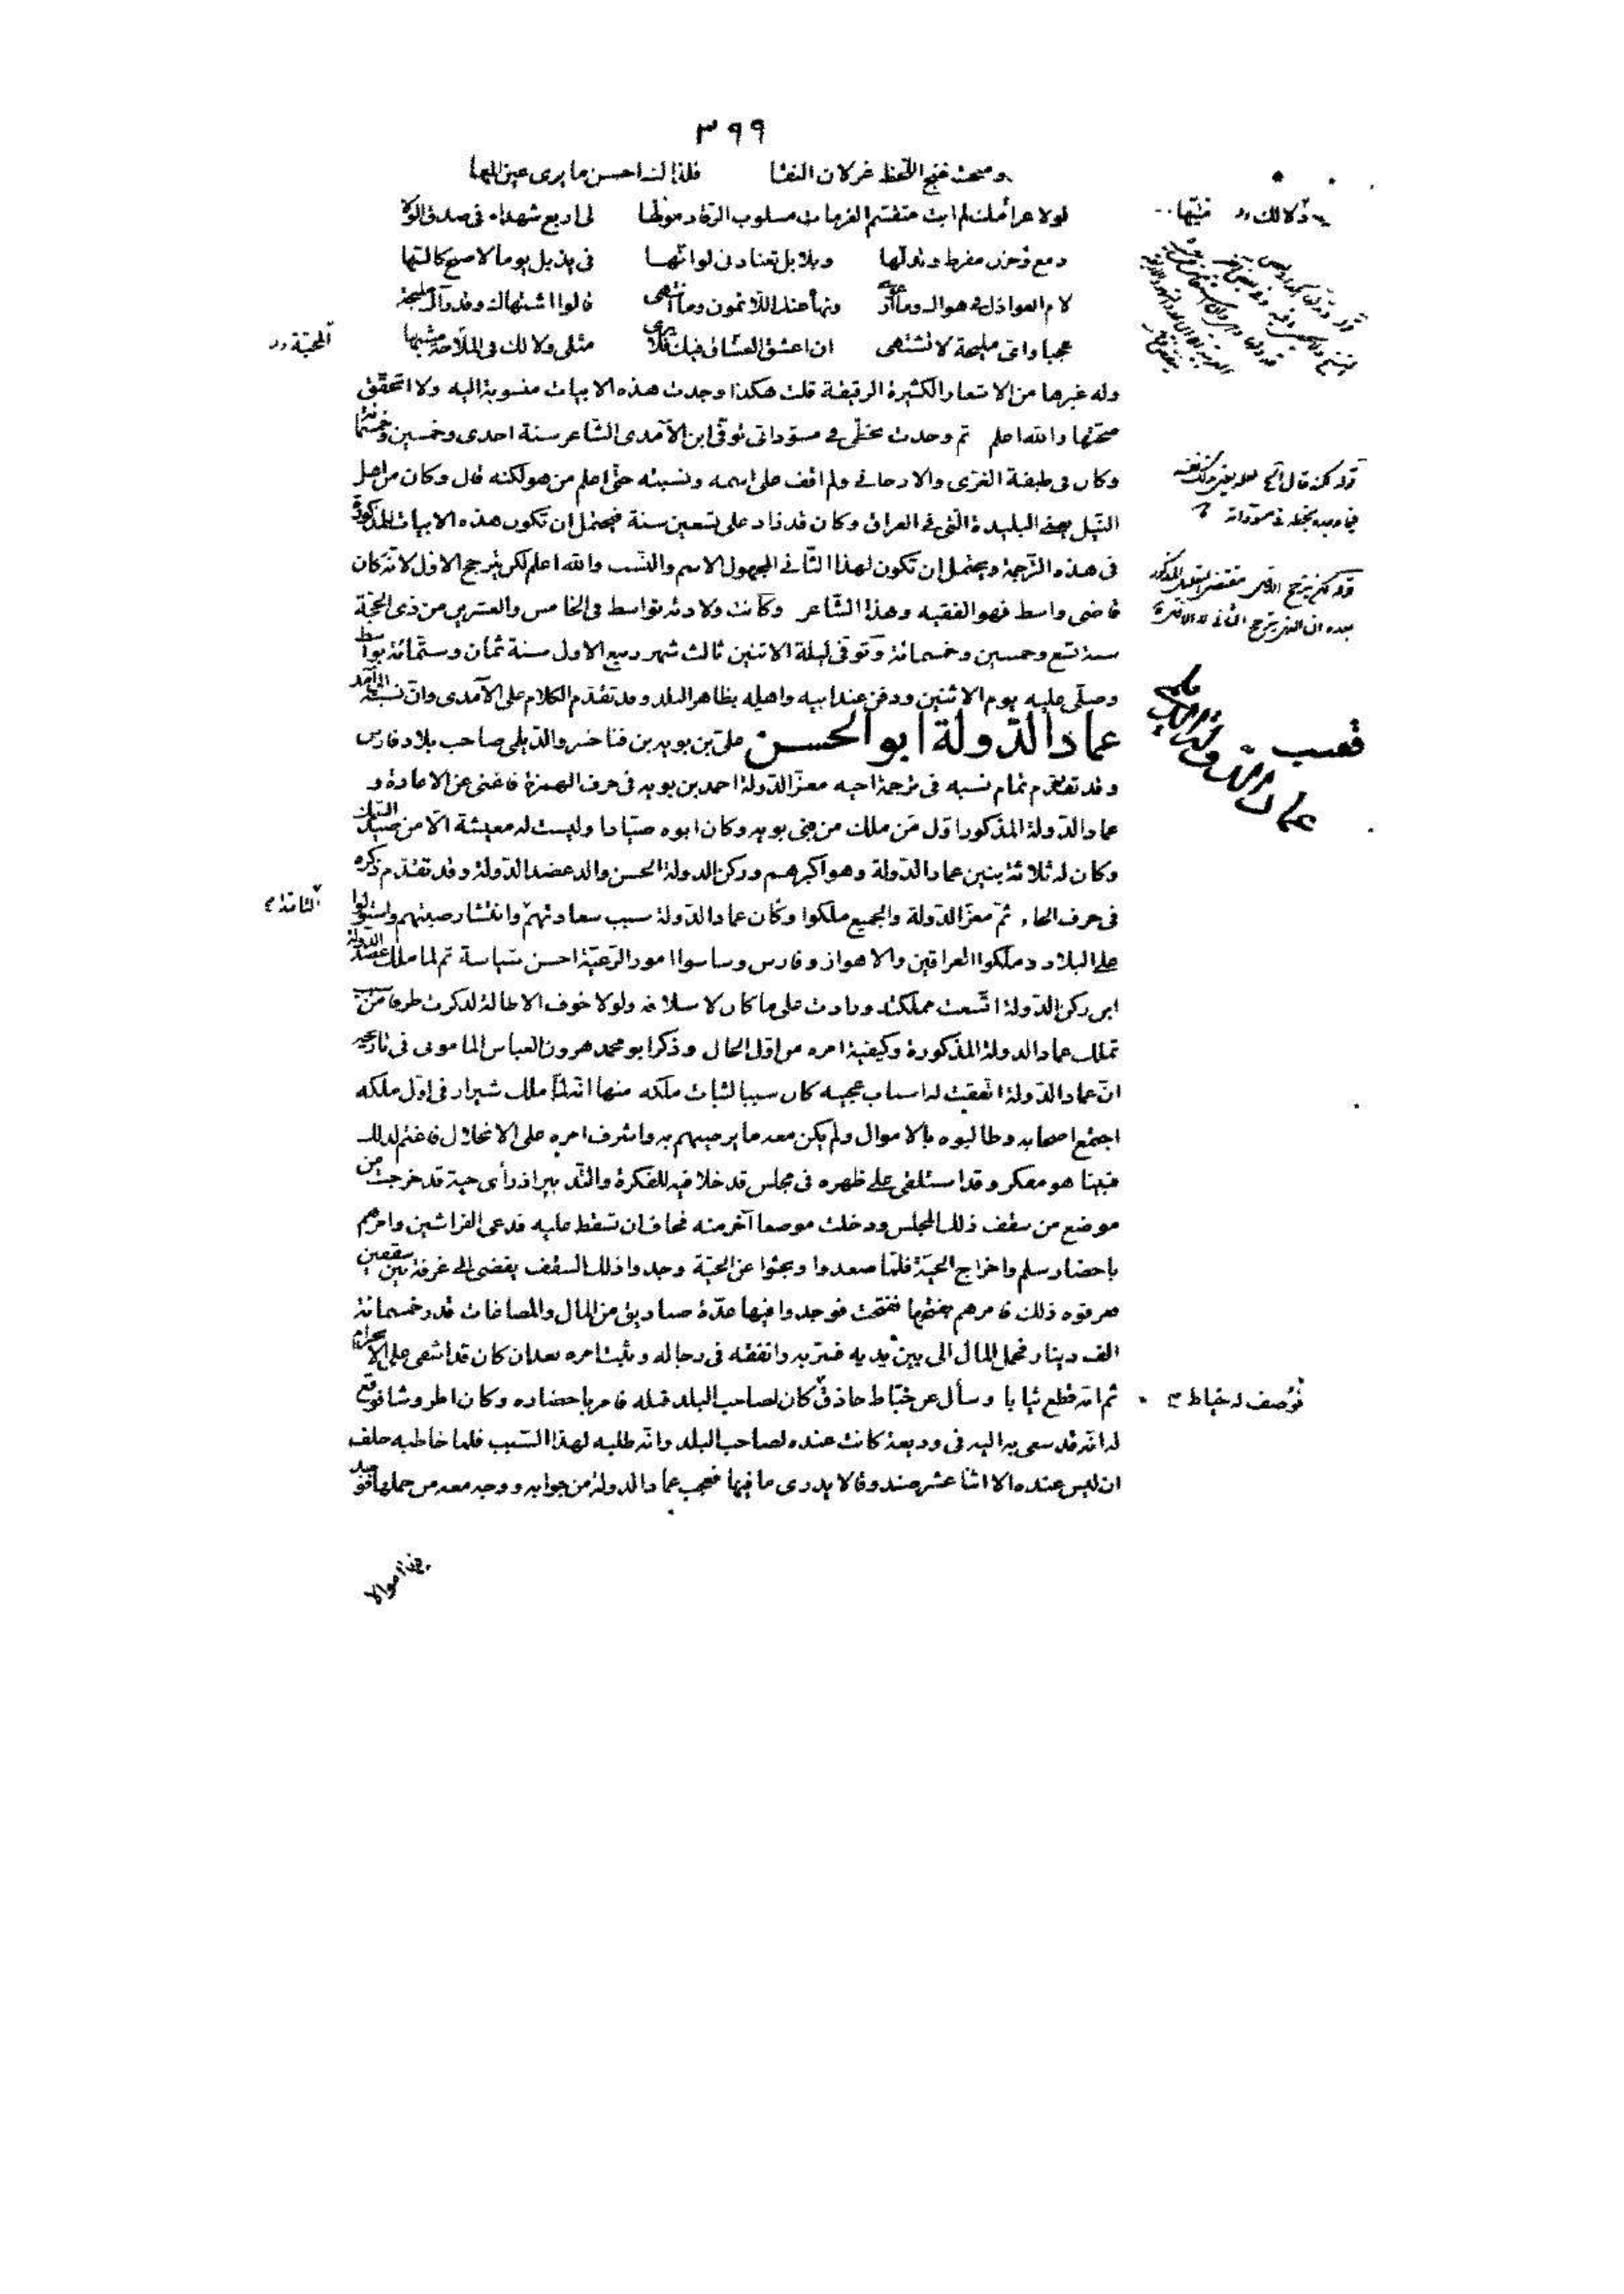 ٣٩٩
ومنحت غنج اللحظ غزلان النقا فلذاك احسن ما يرى عين المها
لولا جرأمك لم ابت متقسم العزمات مسلوب الرقاد مولها لى اربع شهداء فى صدق الولا
دمع وحزن مفرط وتدلها وبلابل تعتادنى لو انها فى يذبل يوما لاصبح كالسها
لام العواذل فى هواك وما ونهاك عنك اللائمون وما انتهى قالوا اشتهاك وقد رآك مليحة
عجبا واى مليحة لا تشتهى ان اعشق العشاق فيك فلا يرى مثلى ولا لك فى الملاحة مشبها
المحبة
وله غيرها من الاشعار الكثيرة الرقيقة قلت هكذا وجدت هذه الابيات منسوبة اليه ولا اتحقق
صحتها والله اعلم ثم وجدت بخطى فى مسوداتى توفى ابن الآمدى الشاعر سنة احدى وخمسين وخمسمائة
وكان فى طبقة الغزى والارجانى ولم اقف على اسمه ونسبته حتى اعلم من هو لكنه قال وكان من اهل
النيل يعنى البليدة التى فى العراق وكان قد زاد على تسعين سنة فيحتمل ان تكون هذه الابيات المذكورة
فى هذه الترجمة ويحتمل ان تكون لهذا الثانى المجهول الاسم والنسب والله اعلم لكن يترجح الاول لانه كان
قاضى واسط فهو الفقيه وهذا الشاعر وكانت ولادته بواسط فى الخامس والعشرين من ذى الحجة
سنة تسع وخمسين وخمسمائة وتوفى ليلة الاثنين ثالث شهر ربيع الاول سنة ثمان وستمائة بواسط
وصلى عليه يوم الاثنين ودفن عند ابيه واهله بظاهر البلد وقد تقدم الكلام على الآمدى وان نسبته الى آمد
عماد الدولة ابو الحسن على بن بويه بن فنا خسرو الديلى صاحب بلاد فارس
وقد تقدم تمام نسبه فى ترجمة اخيه معز الدولة احمد بن بويه فى حرف الهمزة فاغنى عن الاعادة و
عماد الدولة المذكور اول من ملك من بنى بويه وكان ابوه صيادا وليست له معيشة الا من صيد السمك
وكان له ثلاثة بنين عماد الدولة وهو اكبرهم وركن الدولة الحسن والد عضد الدولة وقد تقدم ذكره
فى حرف الحاء ثم معز الدولة والجميع ملكوا وكان عماد الدولة سبب سعادتهم وانتشار صيتهم واستولوا
على البلاد وملكوا العراقين والاهواز وفارس وساسوا امور الرعية احسن سياسة ثم لما ملك عضد الدولة
ابن ركن الدولة اتسعت مملكته وزادت على ما كان لاسلافه ولولا خوف الاطالة لذكرت طرفا من سبب
تملك عماد الدولة المذكورة وكيفية امره من اول الحال وذكر ابو محمد هرون العباس المامونى فى تاريخه
ان عماد الدولة اتفقت له اسباب عجيبه كان سببا لثبات ملكه منها انه لما ملك شيراز فى اول ملكه
اجتمع اصحابه وطالبوه بالاموال ولم يكن معه ما يرضيهم به واشرف امره على الانحلال فاغتم لذلك
فبينا هو مفكر وقد استلقى على ظهره فى مجلس قد خلا فيه للفكرة والتدبير اذ رأى حية قد خرجت من
موضع من سقف ذلك المجلس ودخلت موضعا آخر منه فخاف ان تسقط عليه فدعى الفراشين وامرهم
باحضار سلم واخراج الحية فلما صعدوا وبحثوا عن الحية وجدوا ذلك السقف يفضى الى غرفة بين سقفين
فعرفوه ذلك فامرهم بفتحها ففتحت فوجدوا فيها عدة صناديق من المال والمصاغات قدر خمسمائة
الف دينار فحمل المال الى بين يديه فسر به وانفقه فى رجاله وثبت امره بعد ان كان قد اشفى على الانخرام
ثم انه قطع ثيابا وسأل عن خياط حاذق كان لصاحب البلد قبله فامر باحضاره وكان اطروشا فوقع
فوصف له خياط
له انه قد سعى به اليه فى وديعة كانت عنده لصاحب البلد وانه طلبه لهذا السبب فلما خاطبه حلف
ان ليس عنده الا اثنا عشر صندوقا لا يدرى ما فيها فعجب عماد الدولة من جوابه ووجه معه من حملها فوجد
فيها اموالا